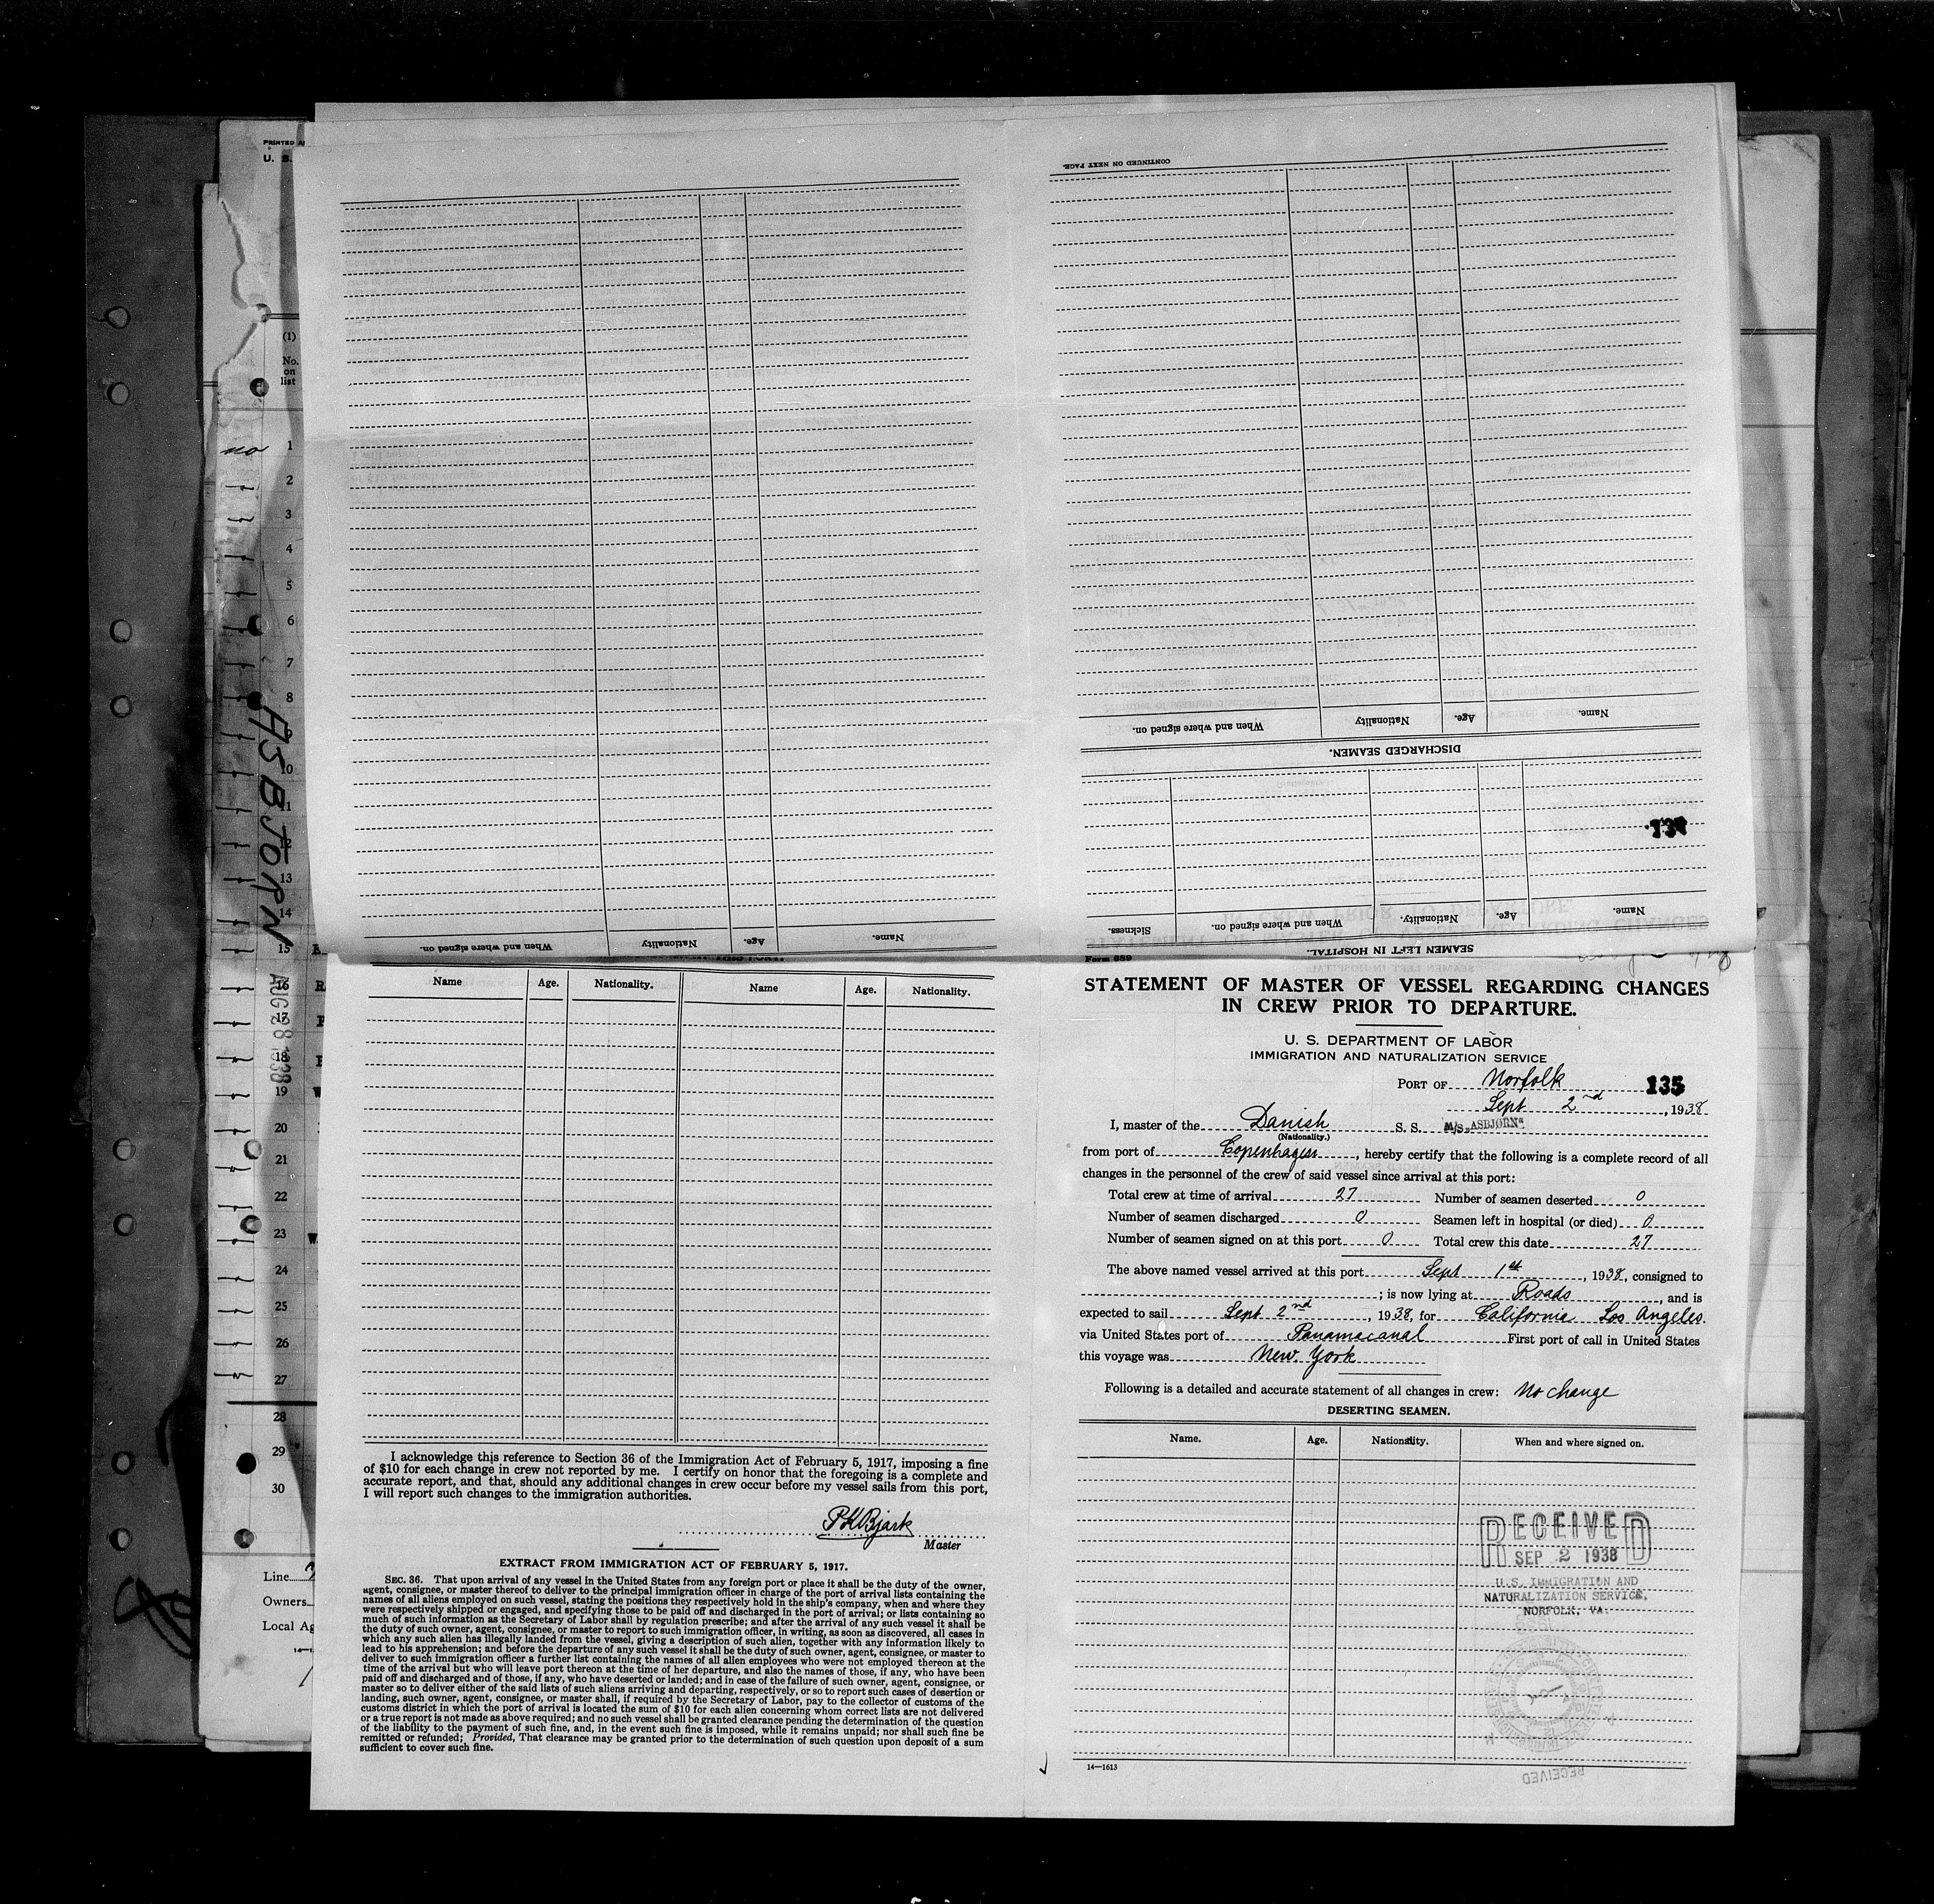 PRINTED
U. S.
(1)
No.
on
list
no
1
2
3
4
5
6
7
8
10
11
12
13
14
15
16
17
18
19
20
21
22
23
24
25
26
27
28
29
30
ASBJORN
AUG 28 1938
Line
Owners
Local Ag
CONTINUED ON NEXT PAGE.
When and where signed on.
Nationality
Age.
Name.
DISCHARGED SEAMEN.
Sickness.
When and where signed on.
Nationality.
Age.
Name.
SEAMEN LEFT IN HOSPITAL.
When and where signed on.
Nationality
Age.
Name.
Name Age. Nationality. Name Age. Nationality.
I acknowledge this reference to Section 36 of the Immigration Act of February 5, 1917, imposing a fine
of $10 for each change in crew not reported by me. I certify on honor that the foregoing is a complete and
accurate report, and that, should any additional changes in crew occur before my vessel sails from this port,
I will report such changes to the immigration authorities.
PKBjark
Master
EXTRACT FROM IMMIGRATION ACT OF FEBRUARY 5, 1917.
SEC. 36. That upon arrival of any vessel in the United States from any foreign port or place it shall be the duty of the owner,
agent, consignee, or master thereof to deliver to the principal immigration officer in charge of the port of arrival lists containing the
names of all aliens employed on such vessel, stating the positions they respectively hold in the ship's company, when and where they
were respectively shipped or engaged, and specifying those to be paid off and discharged in the port of arrival; or lists containing so
much of such information as the Secretary of Labor shall by regulation prescribe; and after the arrival of any such vessel it shall be
the duty of such owner, agent, consignee, or master to report to such immigration officer, in writing, as soon as discovered, all cases in
which any such alien has illegally landed from the vessel, giving a description of such alien, together with any information likely to
lead to his apprehension; and before the departure of any such vessel it shall be the duty of such owner, agent, consignee, or master to
deliver to such immigration officer a further list containing the names of all alien employees who were not employed thereon at the
time of the arrival but who will leave port thereon at the time of her departure, and also the names of those, if any, who have been
paid off and discharged and of those, if any, who have deserted or landed; and in case of the failure of such owner, agent, consignee, or
master so to deliver either of the said lists of such aliens arriving and departing, respectively, or so to report such cases of desertion or
landing, such owner, agent, consignee, or master shall, if required by the Secretary of Labor, pay to the collector of customs of the
customs district in which the port of arrival is located the sum of $10 for each alien concerning whom correct lists are not delivered
or a true report is not made as above required; and no such vessel shall be granted clearance pending the determination of the question
of the liability to the payment of such fine, and, in the event such fine is imposed, while it remains unpaid; nor shall such fine be
remitted or refunded; Provided, That clearance may be granted prior to the determination of such question upon deposit of a sum
sufficient to cover such fine.
Form 689
STATEMENT OF MASTER OF VESSEL REGARDING CHANGES
IN CREW PRIOR TO DEPARTURE.
U. S. DEPARTMENT OF LABOR
IMMIGRATION AND NATURALIZATION SERVICE
PORT OF Norfolk 135
Sept 2nd, 1938
I, master of the Danish S. S. M/S "ASBJØRN"
(Nationality.)
from port of Copenhagen, hereby certify that the following is a complete record of all
changes in the personnel of the crew of said vessel since arrival at this port:
Total crew at time of arrival 27 Number of seamen deserted 0
Number of seamen discharged 0 Seamen left in hospital (or died) 0
Number of seamen signed on at this port 0 Total crew this date 27
The above named vessel arrived at this port Sept 1st, 1938, consigned to
; is now lying at Roads, and is
expected to sail Sept 2nd, 1938, for California Los Angeles
via United States port of Panamacanal First port of call in United States
this voyage was New York
Following is a detailed and accurate statement of all changes in crew: No change
DESERTING SEAMEN.
Name. Age. Nationality. When and where signed on.
RECEIVED
SEP 2 1938
U.S. IMMIGRATION AND
NATURALIZATION SERVICE,
NORFOLK, VA.
RECEIVED
14—1613